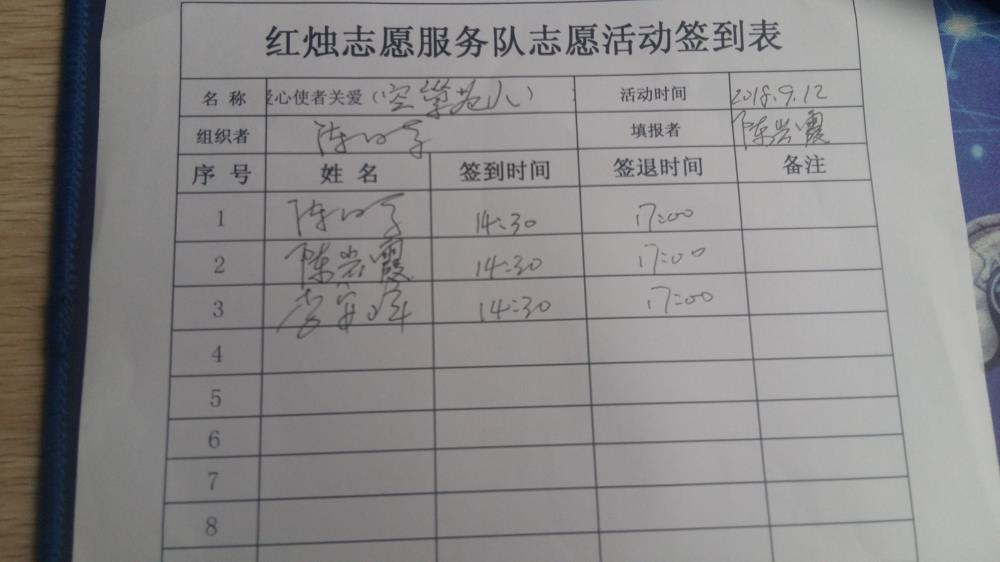 红烛志愿服务队志愿活动签到表
名称 爱心使者关爱（空巢老人） 活动时间 2018.9.12
组织者 陈 填报者 陈岩霞
序号 姓名 签到时间 签退时间 备注
1 陈 14:30 17:00
2 陈岩霞 14:30 17:00
3 14:30 17:00
4
5
6
7
8